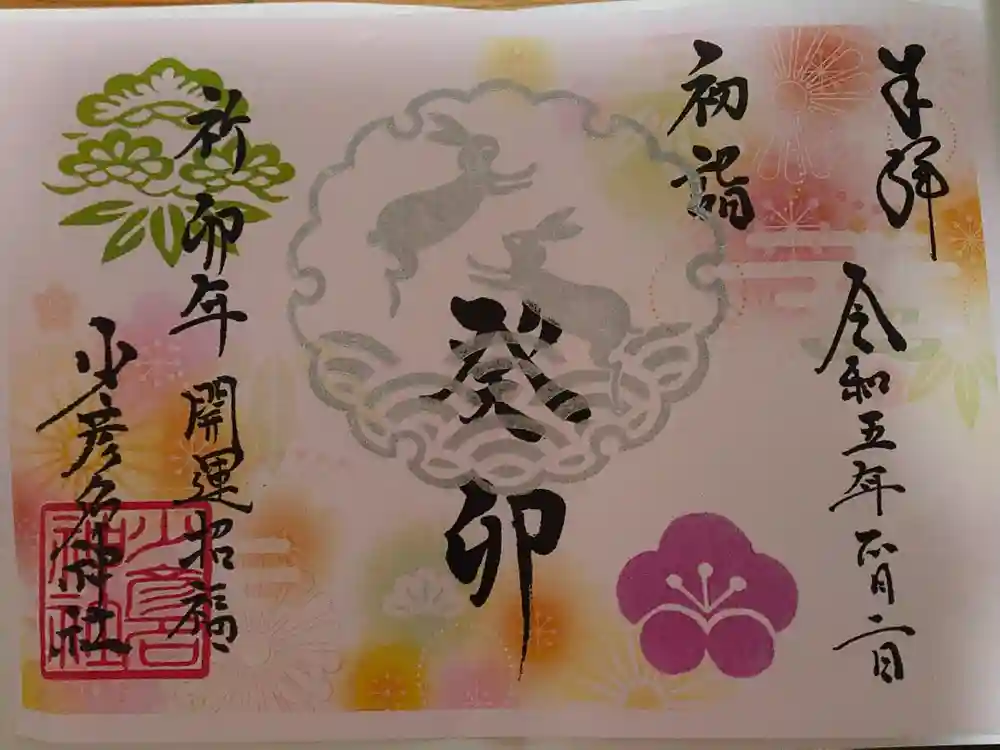 奉拝
令和五年正月二日
初詣
癸卯
祈卯年 開運招福
少彦名神社
少彦名神社